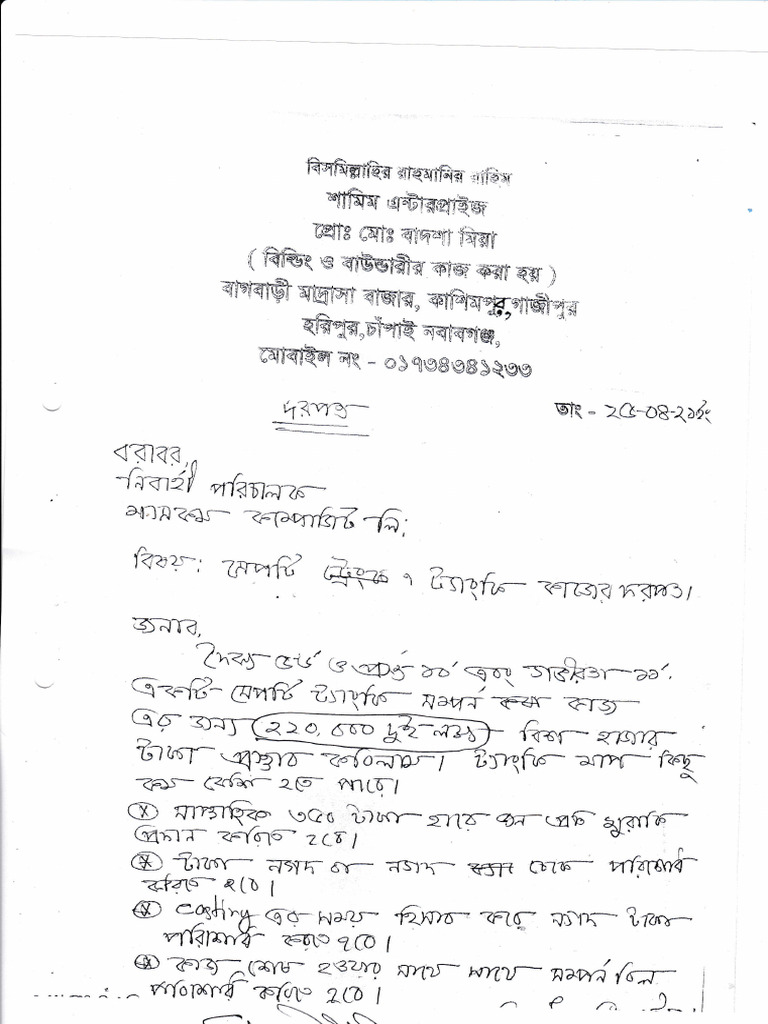 বিসমিল্লাহির রাহমানির রাহিম
শামিম এন্টারপ্রাইজ
প্রোঃ মোঃ বাদশা মিয়া
( বিল্ডিং ও বাউন্ডারীর কাজ করা হয় )
বাগবাড়ী মাদ্রাসা বাজার, কাশিমপুর,গাজীপুর
হরিপুর,চাঁপাই নবাবগঞ্জ,
মোবাইল নং - ০১৭৩৪৩৪১২৩৩
দরপত্র
তাং - ২৫-০৪-২১ইং
বরাবর,
নির্বাহী পরিচালক
কম্পোজিট লি:
বিষয়: সেপটি ট্যাংকি কাজের দরপত্র।
জনাব,
দৈর্ঘ্য ও প্রস্থ ১০' এবং গভীরতা ১১'
একটি সেপটি ট্যাংকি সম্পর্ন কাজ
এর জন্য ২২০,০০০ দুই লক্ষ্য বিশ হাজার
টাকা প্রস্তাব করিলাম। ট্যাংকি মাপ কিছু
কম বেশি হতে পারে।
সাপ্তাহিক ৩৫০ টাকা হারে জন প্রতি খুরাকি
প্রদান করিতে হবে।
টাকা নগদ বা নগদ চেক পরিশোধ
করিতে হবে।
casting এর সময় হিসাব করে নগদ টাকা
পরিশোধ করতে হবে।
কাজ শেষ হওয়ার সাথে সাথে সম্পর্ন বিল
পরিশোধ করিতে হবে।